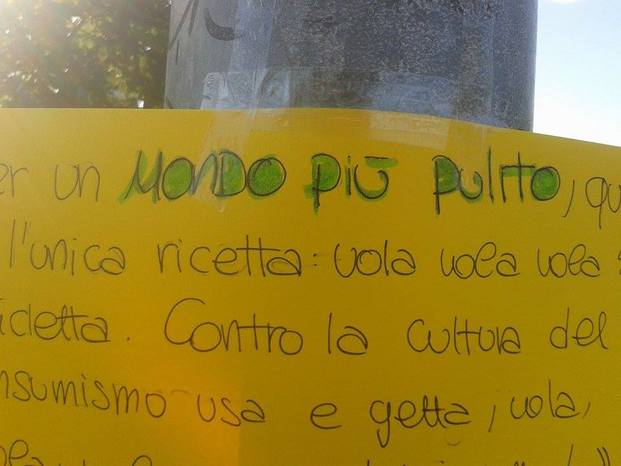 er un MONDO PIÙ PULITO, qu
l'unica ricetta: vola vola vola s
icletta. Contro la cultura del
nsumismo usa e getta, vola,